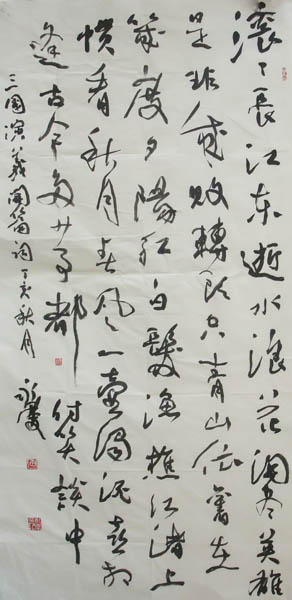 滚々長江东逝水浪花淘尽英雄
是非成败轉头空青山依舊在
幾度夕陽红白髮渔樵江渚上
惯看秋月春风一壶濁酒喜相
逢古今多少事都付笑談中
三国演义開篇词丁亥秋月永慶